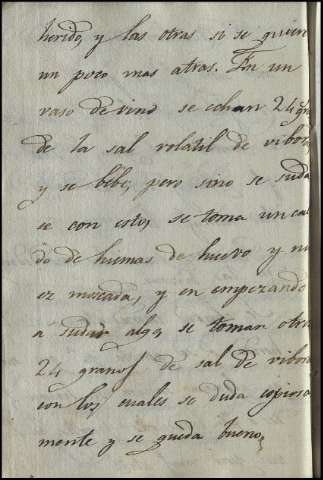 herido, y las otras si se quiere
un poco mas atras. En un
vaso de vino se echan 24 gra
de la sal volatil de vibora
y se bebe, pero sino se suda
se con esto, se toma un cal
do de humas de huevo y nu
ez moscada, y en empezando
a sudar algo, se toman otros
24 granos de sal de vibora
con los cuales se suda copiosa
mente y se queda bueno,